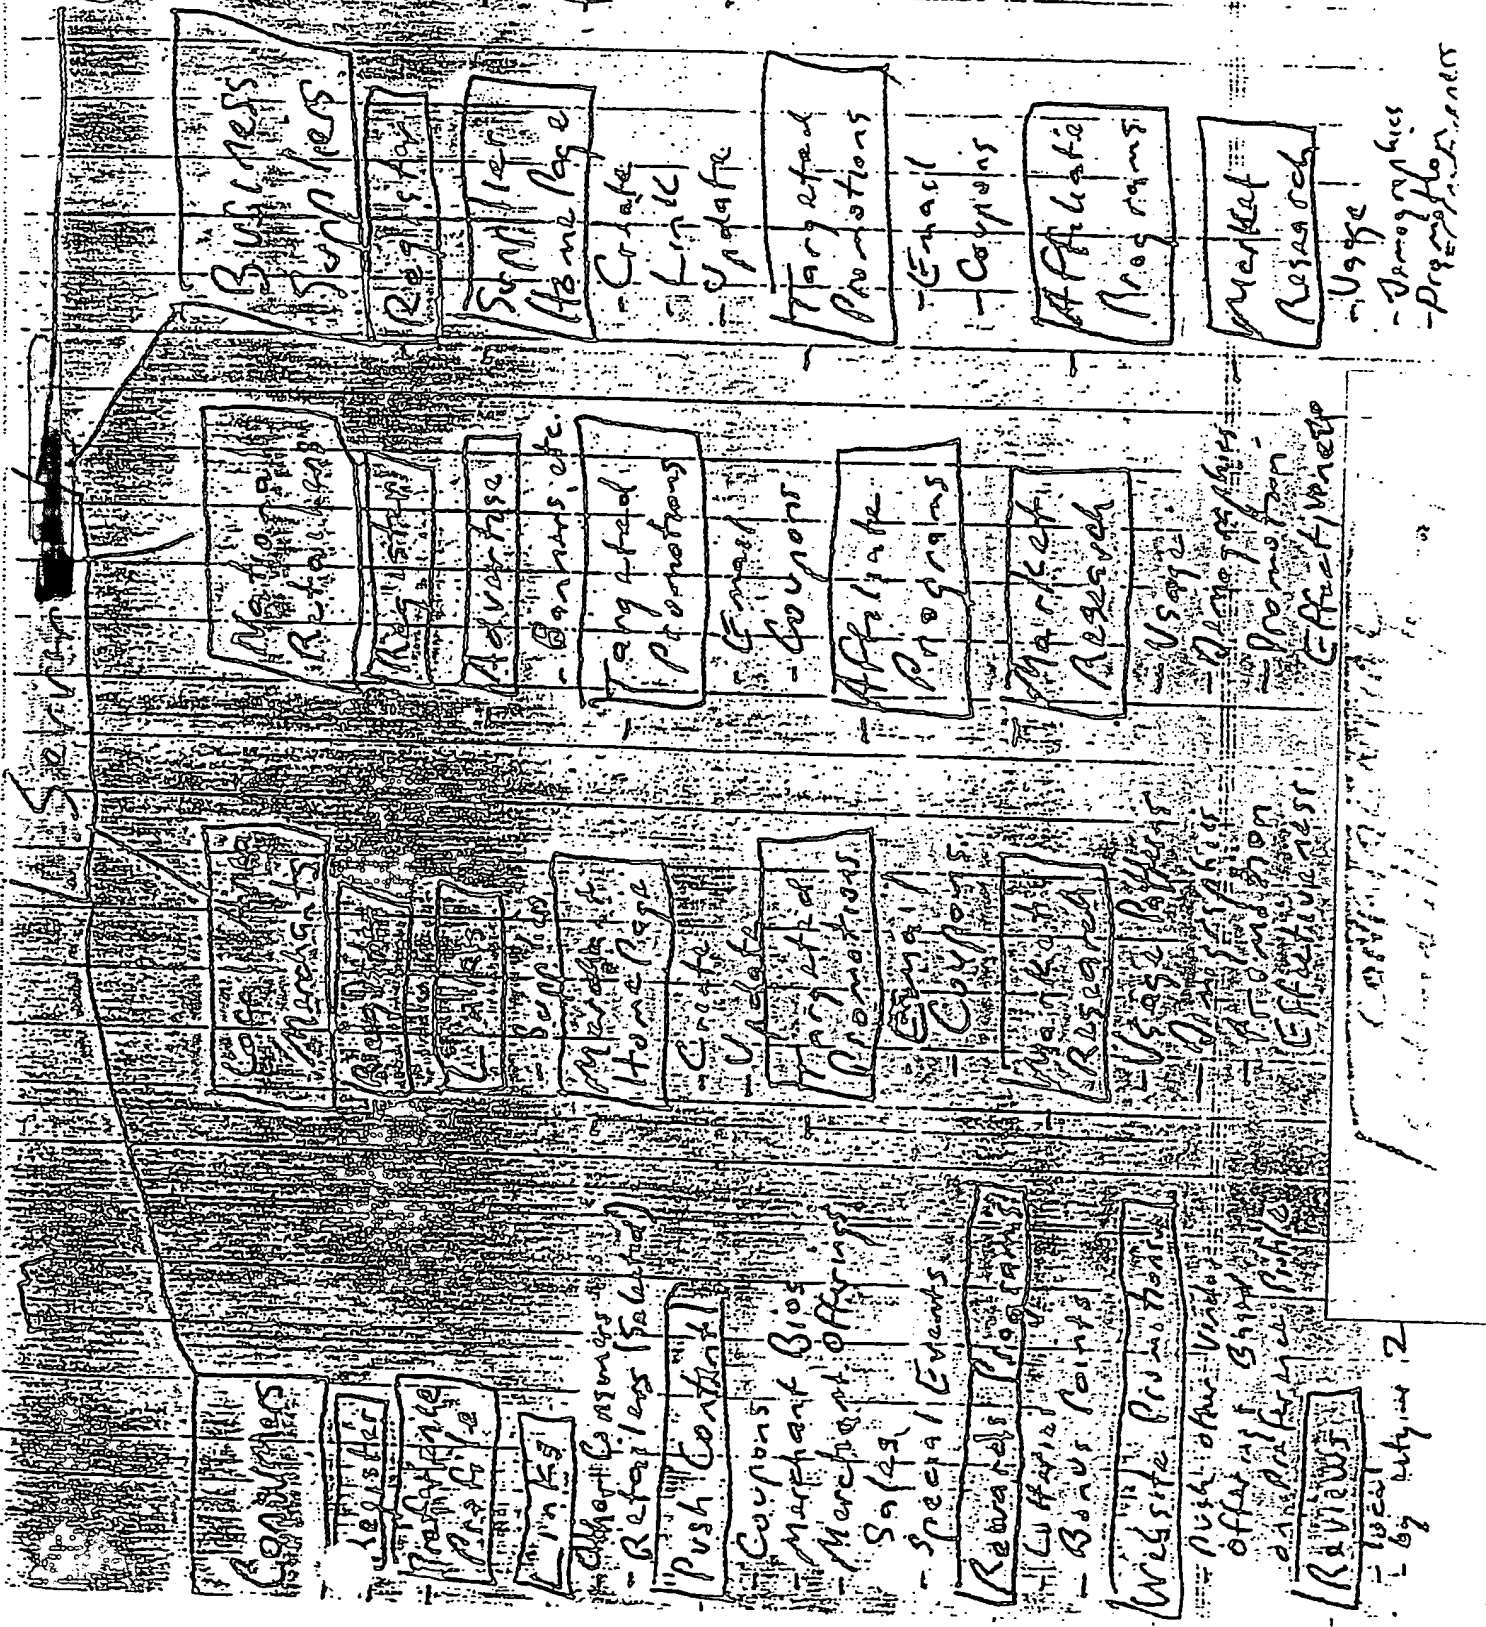 Consumers
Register
Preference
Profile
Links
- Other Consumers
- Retailers (Selected)
Push Content
- Coupons
- Merchant Bios
- Merchant Offerings
- Sales
- Special Events
Rewards Programs
Lotteries
- Bonus Points
Website Promotions
- Push other Vendor
Offerings Based
on preference Profile
Reviews
- local
Merchants
Register
Links
Merchant
Home Page
- Create
- Update
Targeted
Promotions
- Email
- Coupons
Market
Research
- Usage Patterns
- Demographics
- Promotion
Effectiveness
National
Retailers
Register
Advertise
- Banners, etc.
Targeted
Promotions
- Email
- Coupons
Affiliate
Programs
Market
Research
- Usage
- Demographics
- Promotion
Effectiveness
Business
Suppliers
Register
Supplier
Home Page
- Create
- Link
- Update
Targeted
Promotions
- Email
- Coupons
Affiliate
Programs
Market
Research
- Usage
- Demographics
- Promotion